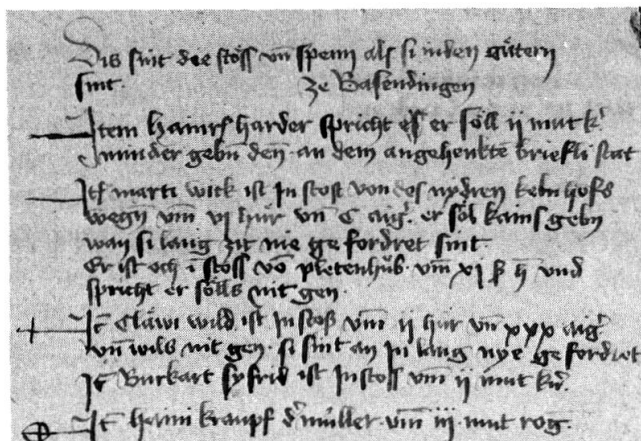 Dis sint die stöss vn̄ spenn als si in den gůtern
sint ze Basendingen
Item Hainrs harder spricht er söll ij mut k̄
minder gebn den an dem angehenkte briefli stat
It̄ marti wick ist In stoss von des nydren kelnhofs
wegn vm̄ vj hůr vn C aiḡ. er söl kains gebn
wan si lang zit nie ge fordret sint
Er ist och ī stöss vō pletenhůb vm̄ xj ß h̄ vnd
spricht er sölls nit gen.
It̄ Cläwi wild ist In stoß vm̄ ij hůr vn̄ xxx aiḡ
vn̄ wils nit gen. si sint an In lang nye ge fordret
It̄ Burkart syfrid ist In stoss vm̄ ij mut k̄n.
It̄ haini krapf d̄ müller. vm̄ iij mut rog.